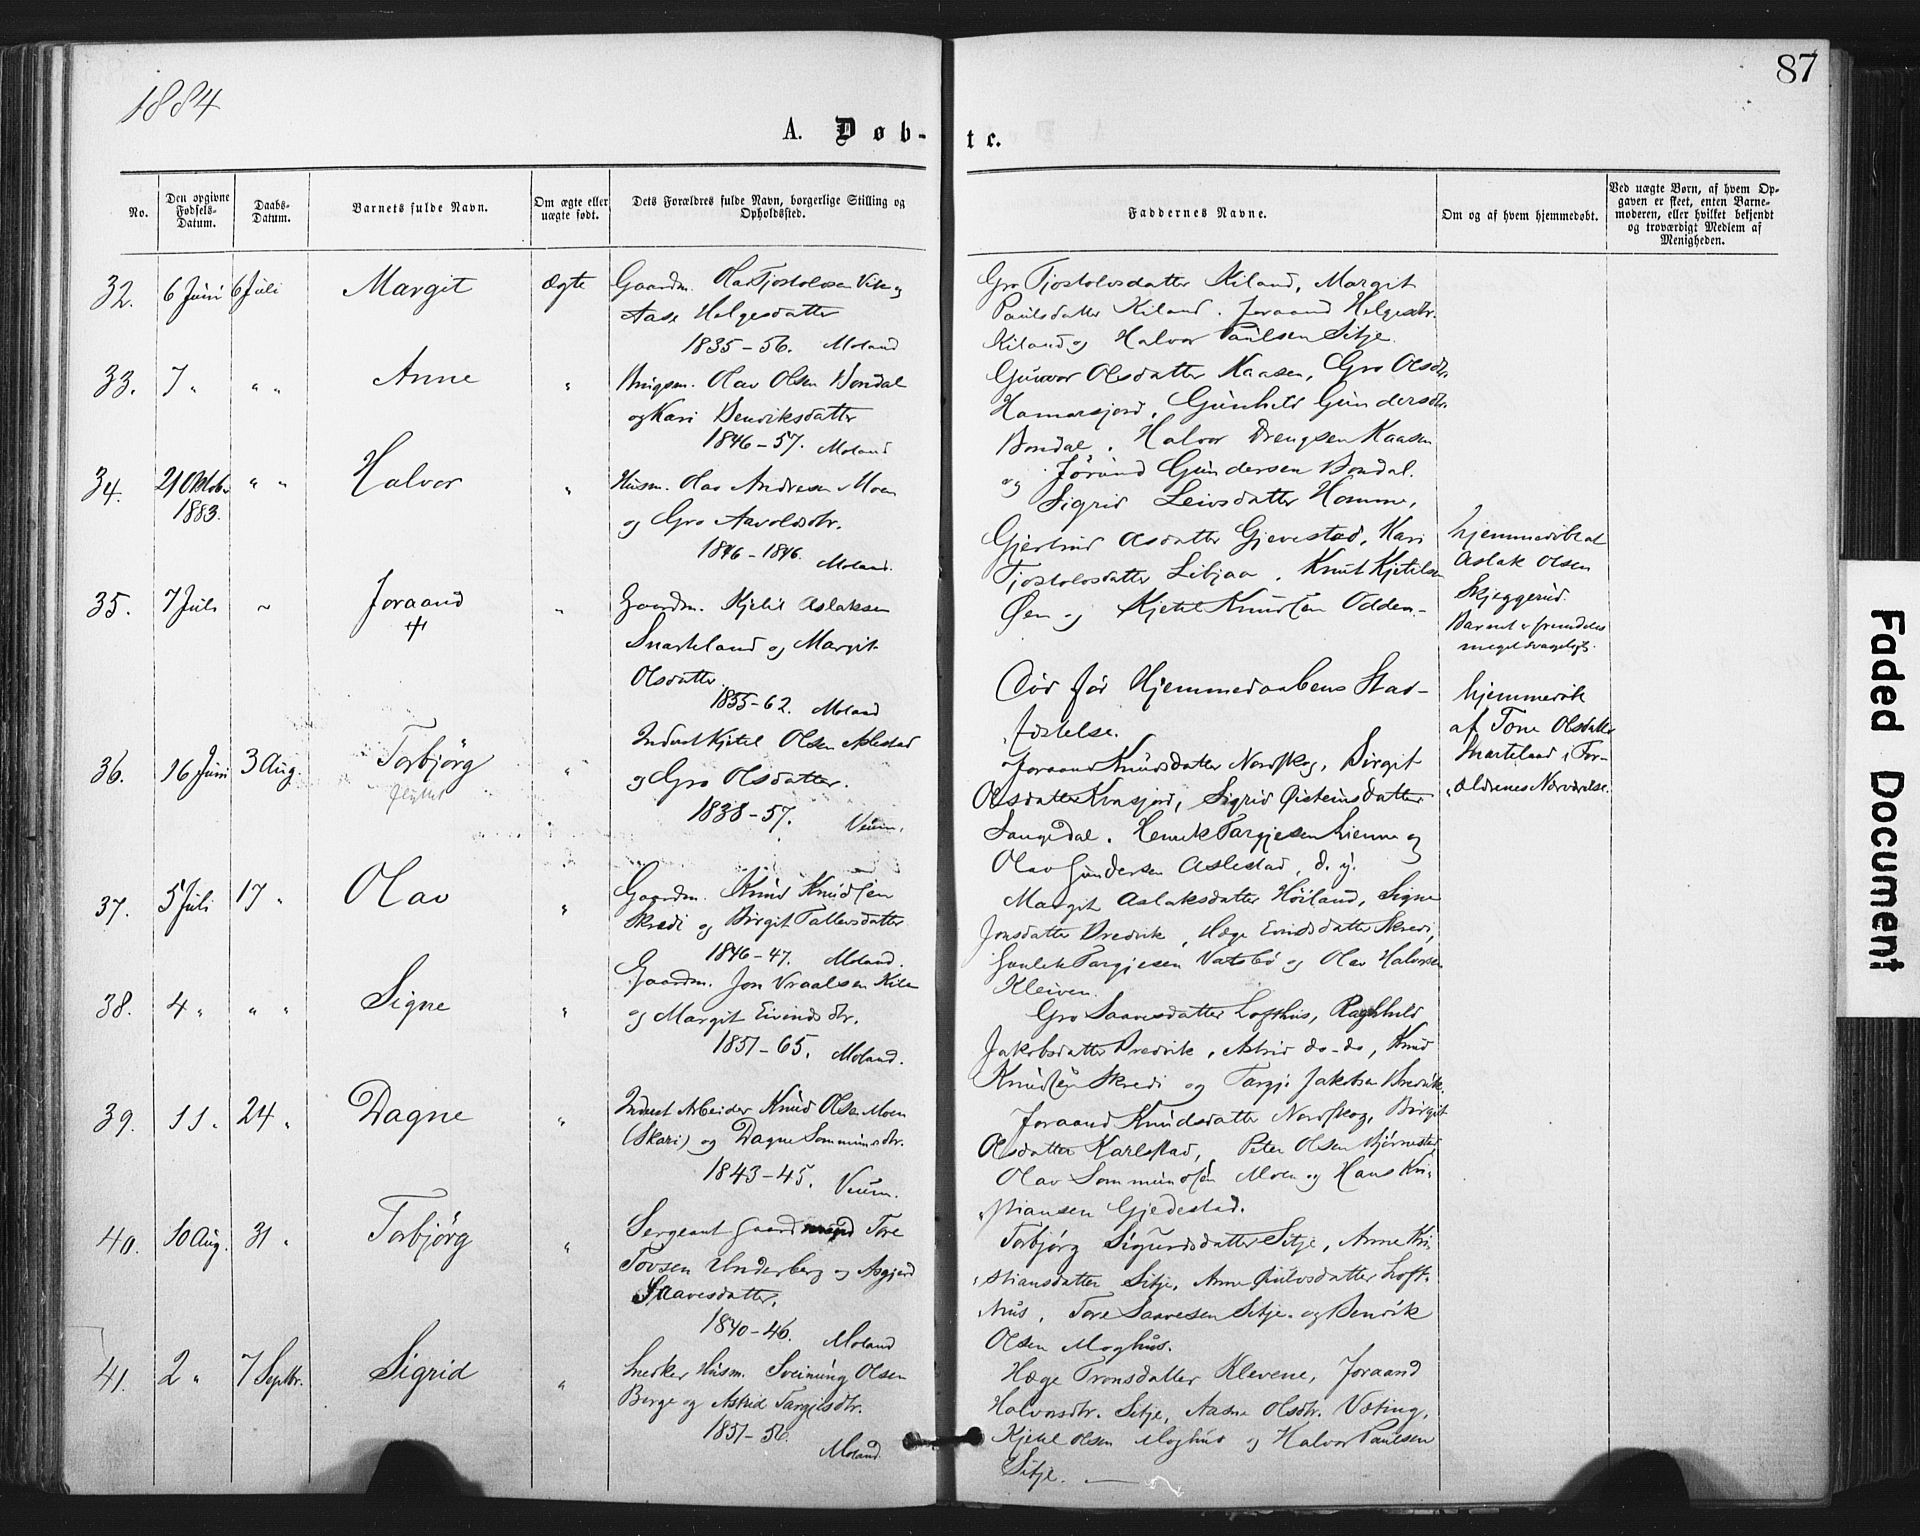 1884
87
A. Døb-
te.
No.
Den opgivne Fødsels-Datum.
Daabs-Datum.
Barnets fulde Navn.
Om ægte eller uægte født.
Dets Forældres fulde Navn, borgerlige Stilling og Opholdssted.
Faddernes Navne.
Om og af hvem hjemmedøbt.
Ved uægte Børn, af hvem Opgaven er skeet, enten Barnemoderen, eller hvilket bekjendt og troværdigt Medlem af Menigheden.
32. 6 Juni 6 Juli Margit ægte
Gaardm. Olav Tjostolvsen Vik og
Aase Helgesdatter
1835-56. Moland
Gro Tjostolvsdatter Kiland, Margit
Paulsdatter Kiland. Joraand Helgesdtr.
Kiland og Halvor Paulsen Sitje.
33. 7 " " " Anne "
Brugsm. Olav Olsen Bondal
og Kari Benviksdatter
1846-57. Moland
Gunvor Olsdatter Kaasen, Gro Olsdtr.
Hamarsjord, Gunhild Gundersdtr.
Bondal. Halvor Drengsen Kaasen
og Jørund Gundersen Bondal.
34. 21 Oktobr 1883. " " Halvor "
Husm. Olav Andresen Moen
og Gro Aavoldsdtr.
1846-1846. Moland.
Sigrid Leivsdatter Homme,
Gjertrud Asdatter Gjevestad, Kari
Tjostolvsdatter Libjaa, Knut Kjetilsen
Øen og Kjetil Knudsen Odden.
hjemmedøbt af
Aslak Olsen
Skjeggerud.
Barnet er fremdeles
meget svageligt.
35. 7 Juli ~ Joraand "
Gaardm. Kjetil Aslaksen
Snarteland og Margit
Olsdatter.
1855-62. Moland
Død før Hjemmedaabens Stad-
fæstelse.
hjemmedøbt
af Tone Olsdatter
Snarteland i For-
ældrenes Nærværelse.
36. 16 Juni 3 Aug. Torbjörg "
flyttet
Inderst Kjetil Olsen Aslestad
og Gro Olsdatter.
1838-57. Veum.
Joraand Knudsdatter Nordskog, Birgit
Olsdatter Kvasjord, Sigrid Øisteinsdatter
Saugedal. Henrik Targjesen Lienne og
Olav Gundersen Aslestad, d. y.
37. 5 Juli 17 " Olav "
Gaardm. Knud Knudsen
Skredi og Birgit Tallevsdatter
1846-47. Moland.
Margit Aslaksdatter Høiland, Signe
Jonsdatter Bredvik, Hæge Eivindsdatter Skredi,
Gunleik Targjesen Vatsbø og Olav Halvorsen
Kleiven.
38. 4 " " " Signe "
Gaardm. Jon Vraalsen Kile
og Margit Eivindsdtr.
1851-65. Moland.
Gro Saavesdatter Lofthus, Ragnhild
Jakobsdatter Bredvik, Astrid do-do, Knud
Knudsen Skredi og Targje Jakobsen Bredvik
39. 11 " 24 " Dagne "
Inderst Arbeider Knud Olsen Moen
(Skari) og Dagne Sommundsdtr.
1843-45. Veum.
Joraand Knudsdatter Nordskog, Birgit
Olsdatter Karlstad, Peter Olsen Bjørnestad,
Olav Sommundsen Moen og Hans Kri-
stiansen Gjedestad.
40. 10 Aug. 31 " Torbjørg "
Sergeant Gaardmand Tore
Tovsen Underberg og Asgjerd
Saavesdatter,
1840-46. Moland
Torbjørg Sigurdsdatter Sitje, Anne Kri-
stiansdatter Sitje, Anne Øiulvsdatter Loft-
hus, Tore Saavesen Sitje og Benvik
Olsen Moghus.
41. 2 " 7 Septbr. Sigrid "
Snedker Husm. Sveinung Olsen
Berge og Astrid Targjesdtr.
1851-56. Moland.
Hæge Tronsdatter Klevene, Joraand
Halvorsdtr. Sitje, Aasne Olsdtr. Væting,
Kjetil Olsen Moghus og Halvor Paulsen
Sitje.
Faded Document